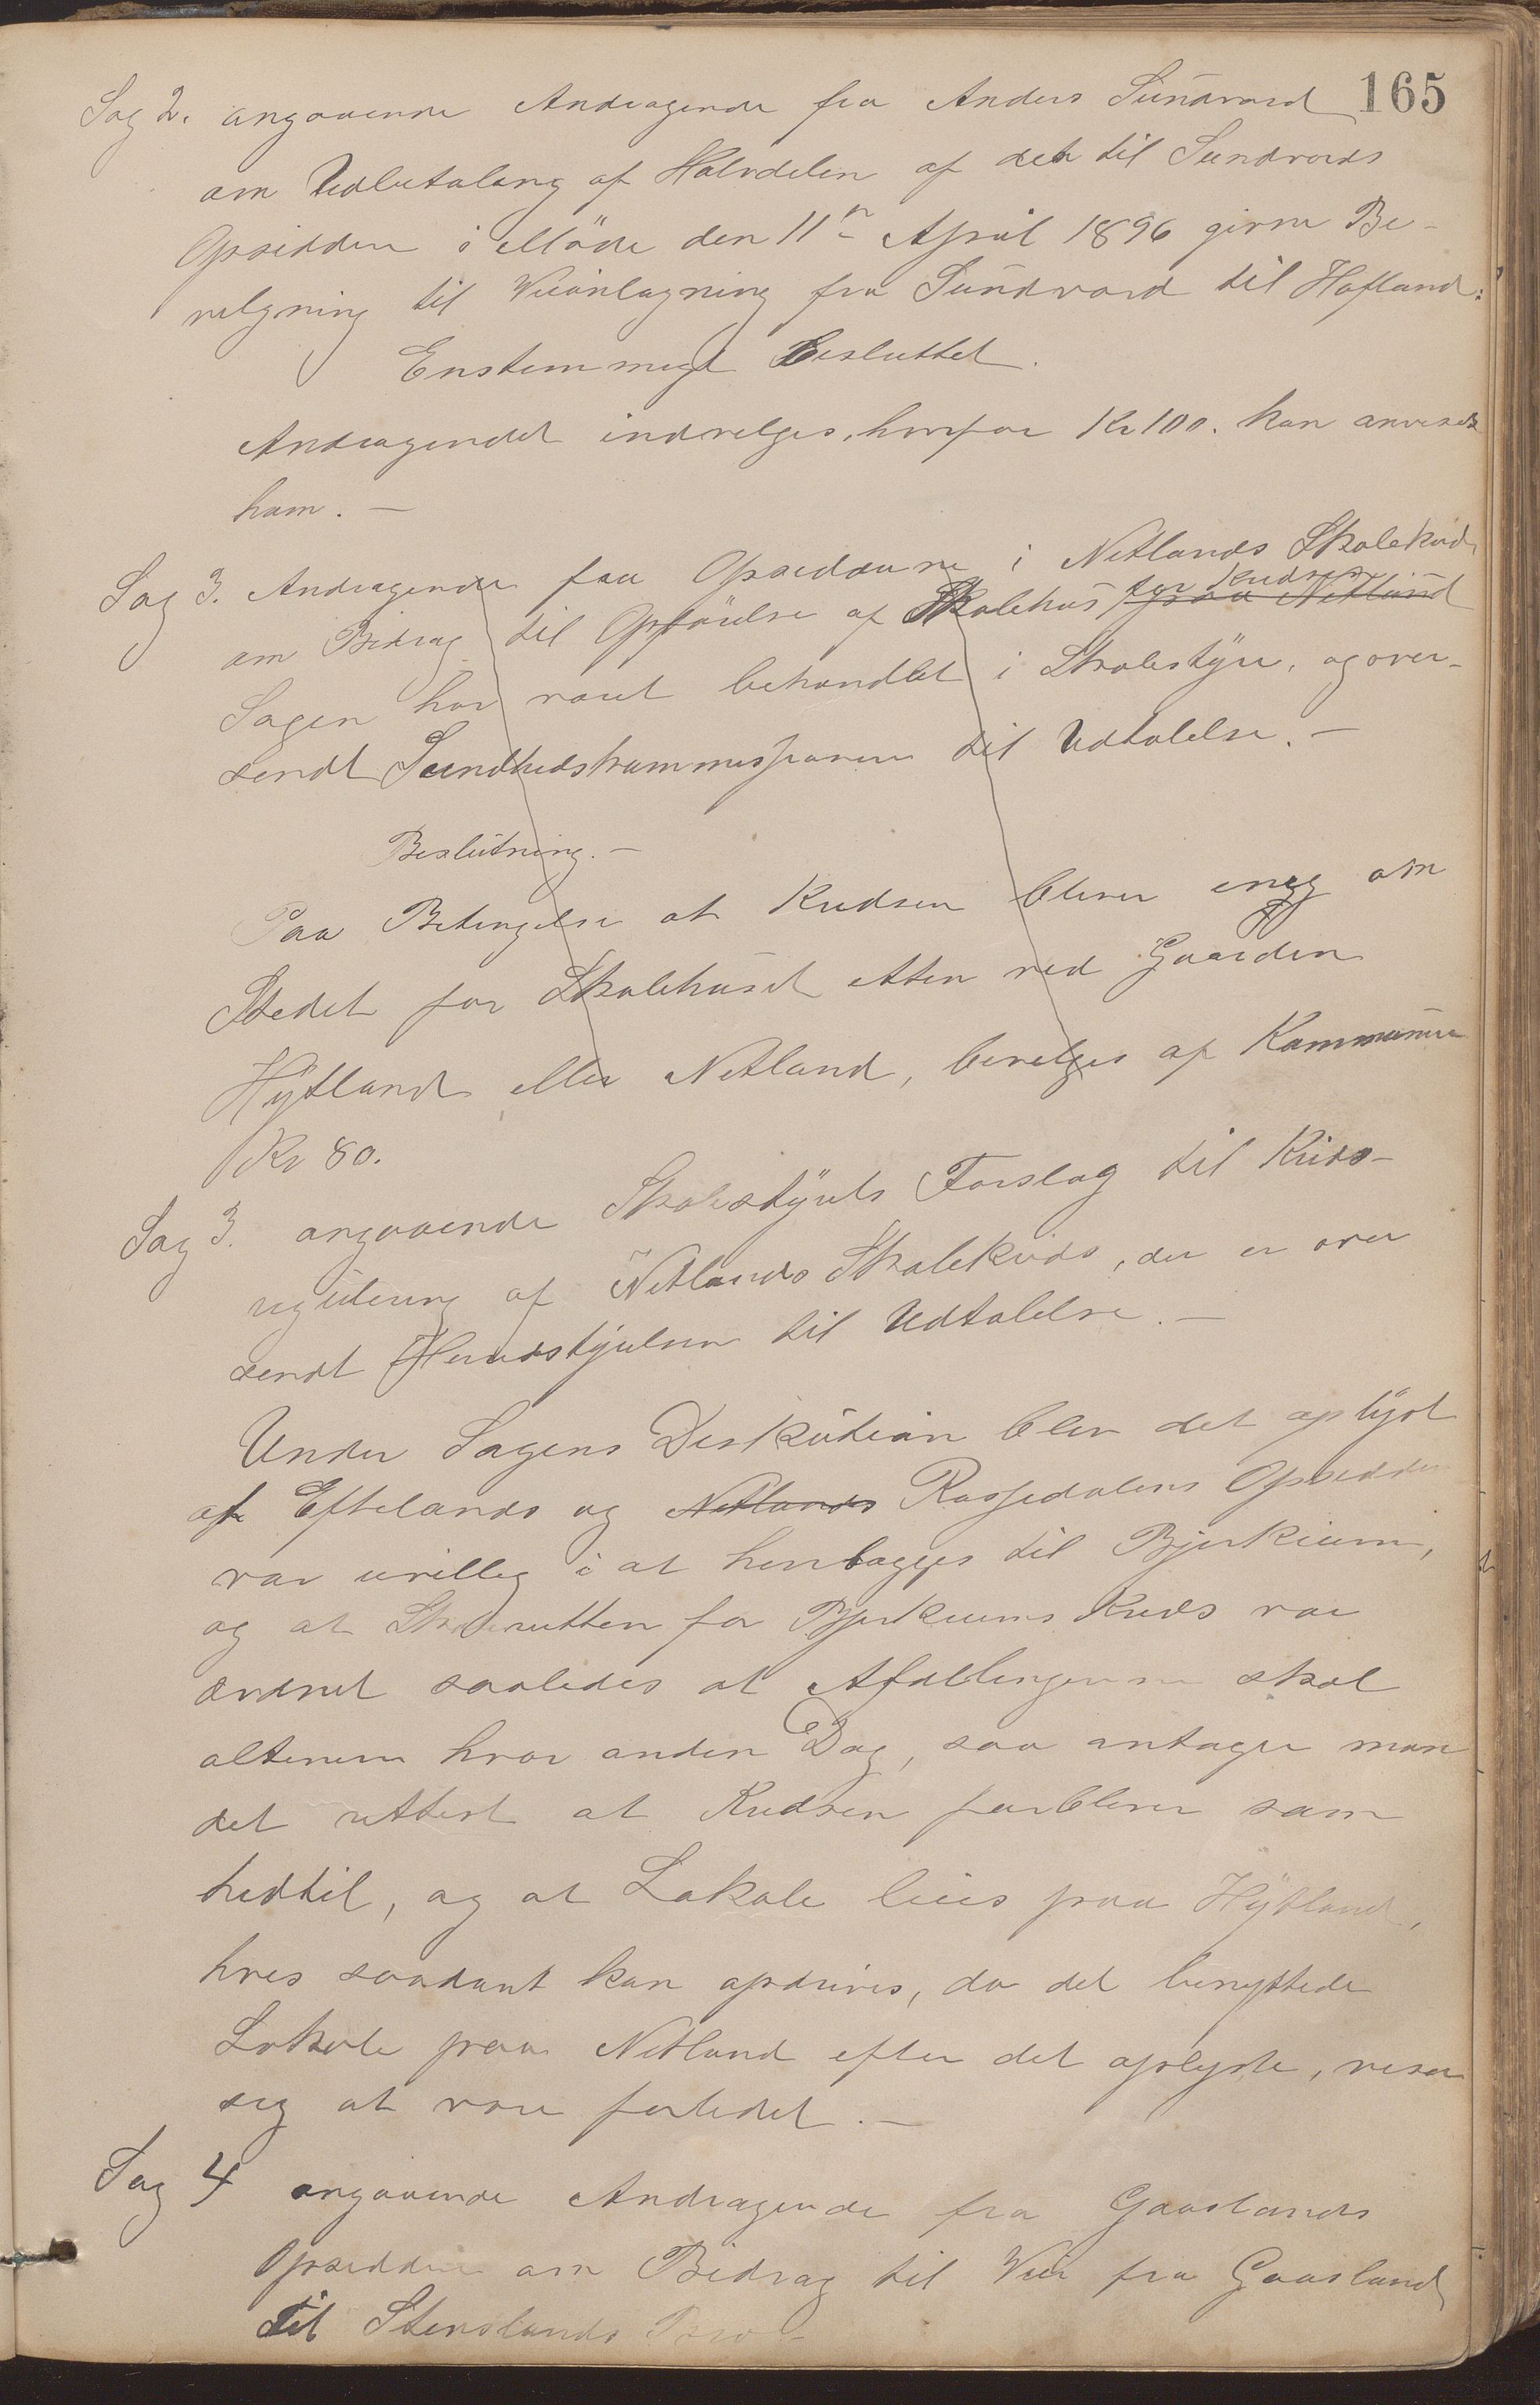 165
Sag 2. angaaende Andragende fra Anders Sundvord
om Udbetaling af Halvdelen af det til Sundvords
Opsiddere i Møde den 11n April 1896 givne Be-
vilgning til Veianlægning fra Sundvord til Hofland:
Enstemmigt Besluttet.
Andragendet indvelges, hvorfor Kr 100. kan anvises
ham. —
Sag 3. Andragende fra Opsidderne i Netlands Skolekreds
for Kredsen
om Bidrag til Opførelse af Skolehus paa Netland
Sagen har været behandlet i Skolestyre, og over-
sendt Sundhedskommissionen til Udtalelse. —
Beslutning. —
Paa Betingelse at Kredsen bliver enig om
Stedet for Skolehuset etten ved Gaarden
Hytland eller Netland, bevelges af Kommunen
Kr 80.
Sag 3. angaaende Skolestyrets Forslag til Kreds-
regulering af Netlands Skolekreds, der er over
sendt Herredstyrelsen til Udtalelse. —
Under Sagens Diskution blev det oplyst
at Eftelands og Netlands Rossedalens Opsiddere
var uvillig i at henlægges til Bjerkreim,
og at Skoleruten for Bjerkreims Kreds var
ordnet saaledes at Afdelingerne skal
alternere hver anden Dag, saa antager man
det rettest at Kredsen forbliver som
hidtil, og at Lokale leies paa Hytland,
hves saadant kan opdrives, da det benyttede
Lokale paa Netland efter det oplyste, viser
seg at være forledet. —
Sag 4 angaaende Andragende fra Gaaslands
Opsiddere om Bidrag til Vei fra Gaasland
til Stenslands Bro —